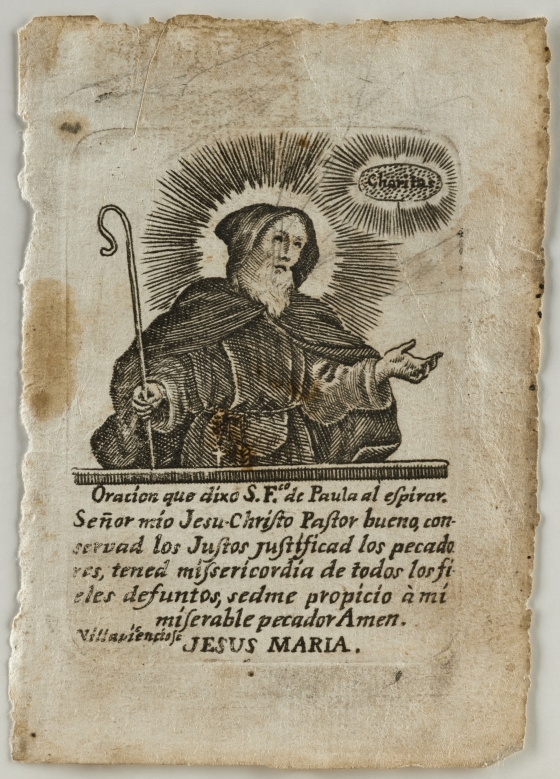 Charitas
Oracion que dixo S. F.co de Paula al eſpirar.
Señor mio Jesu-Chriſto Paſtor bueno, con-
servad los Juſtos juſtificad los pecado
res, tened miſsericordia de todos los fi
eles defuntos, sedme propicio à mi
miſerable pecador Amen.
JESUS MARIA.